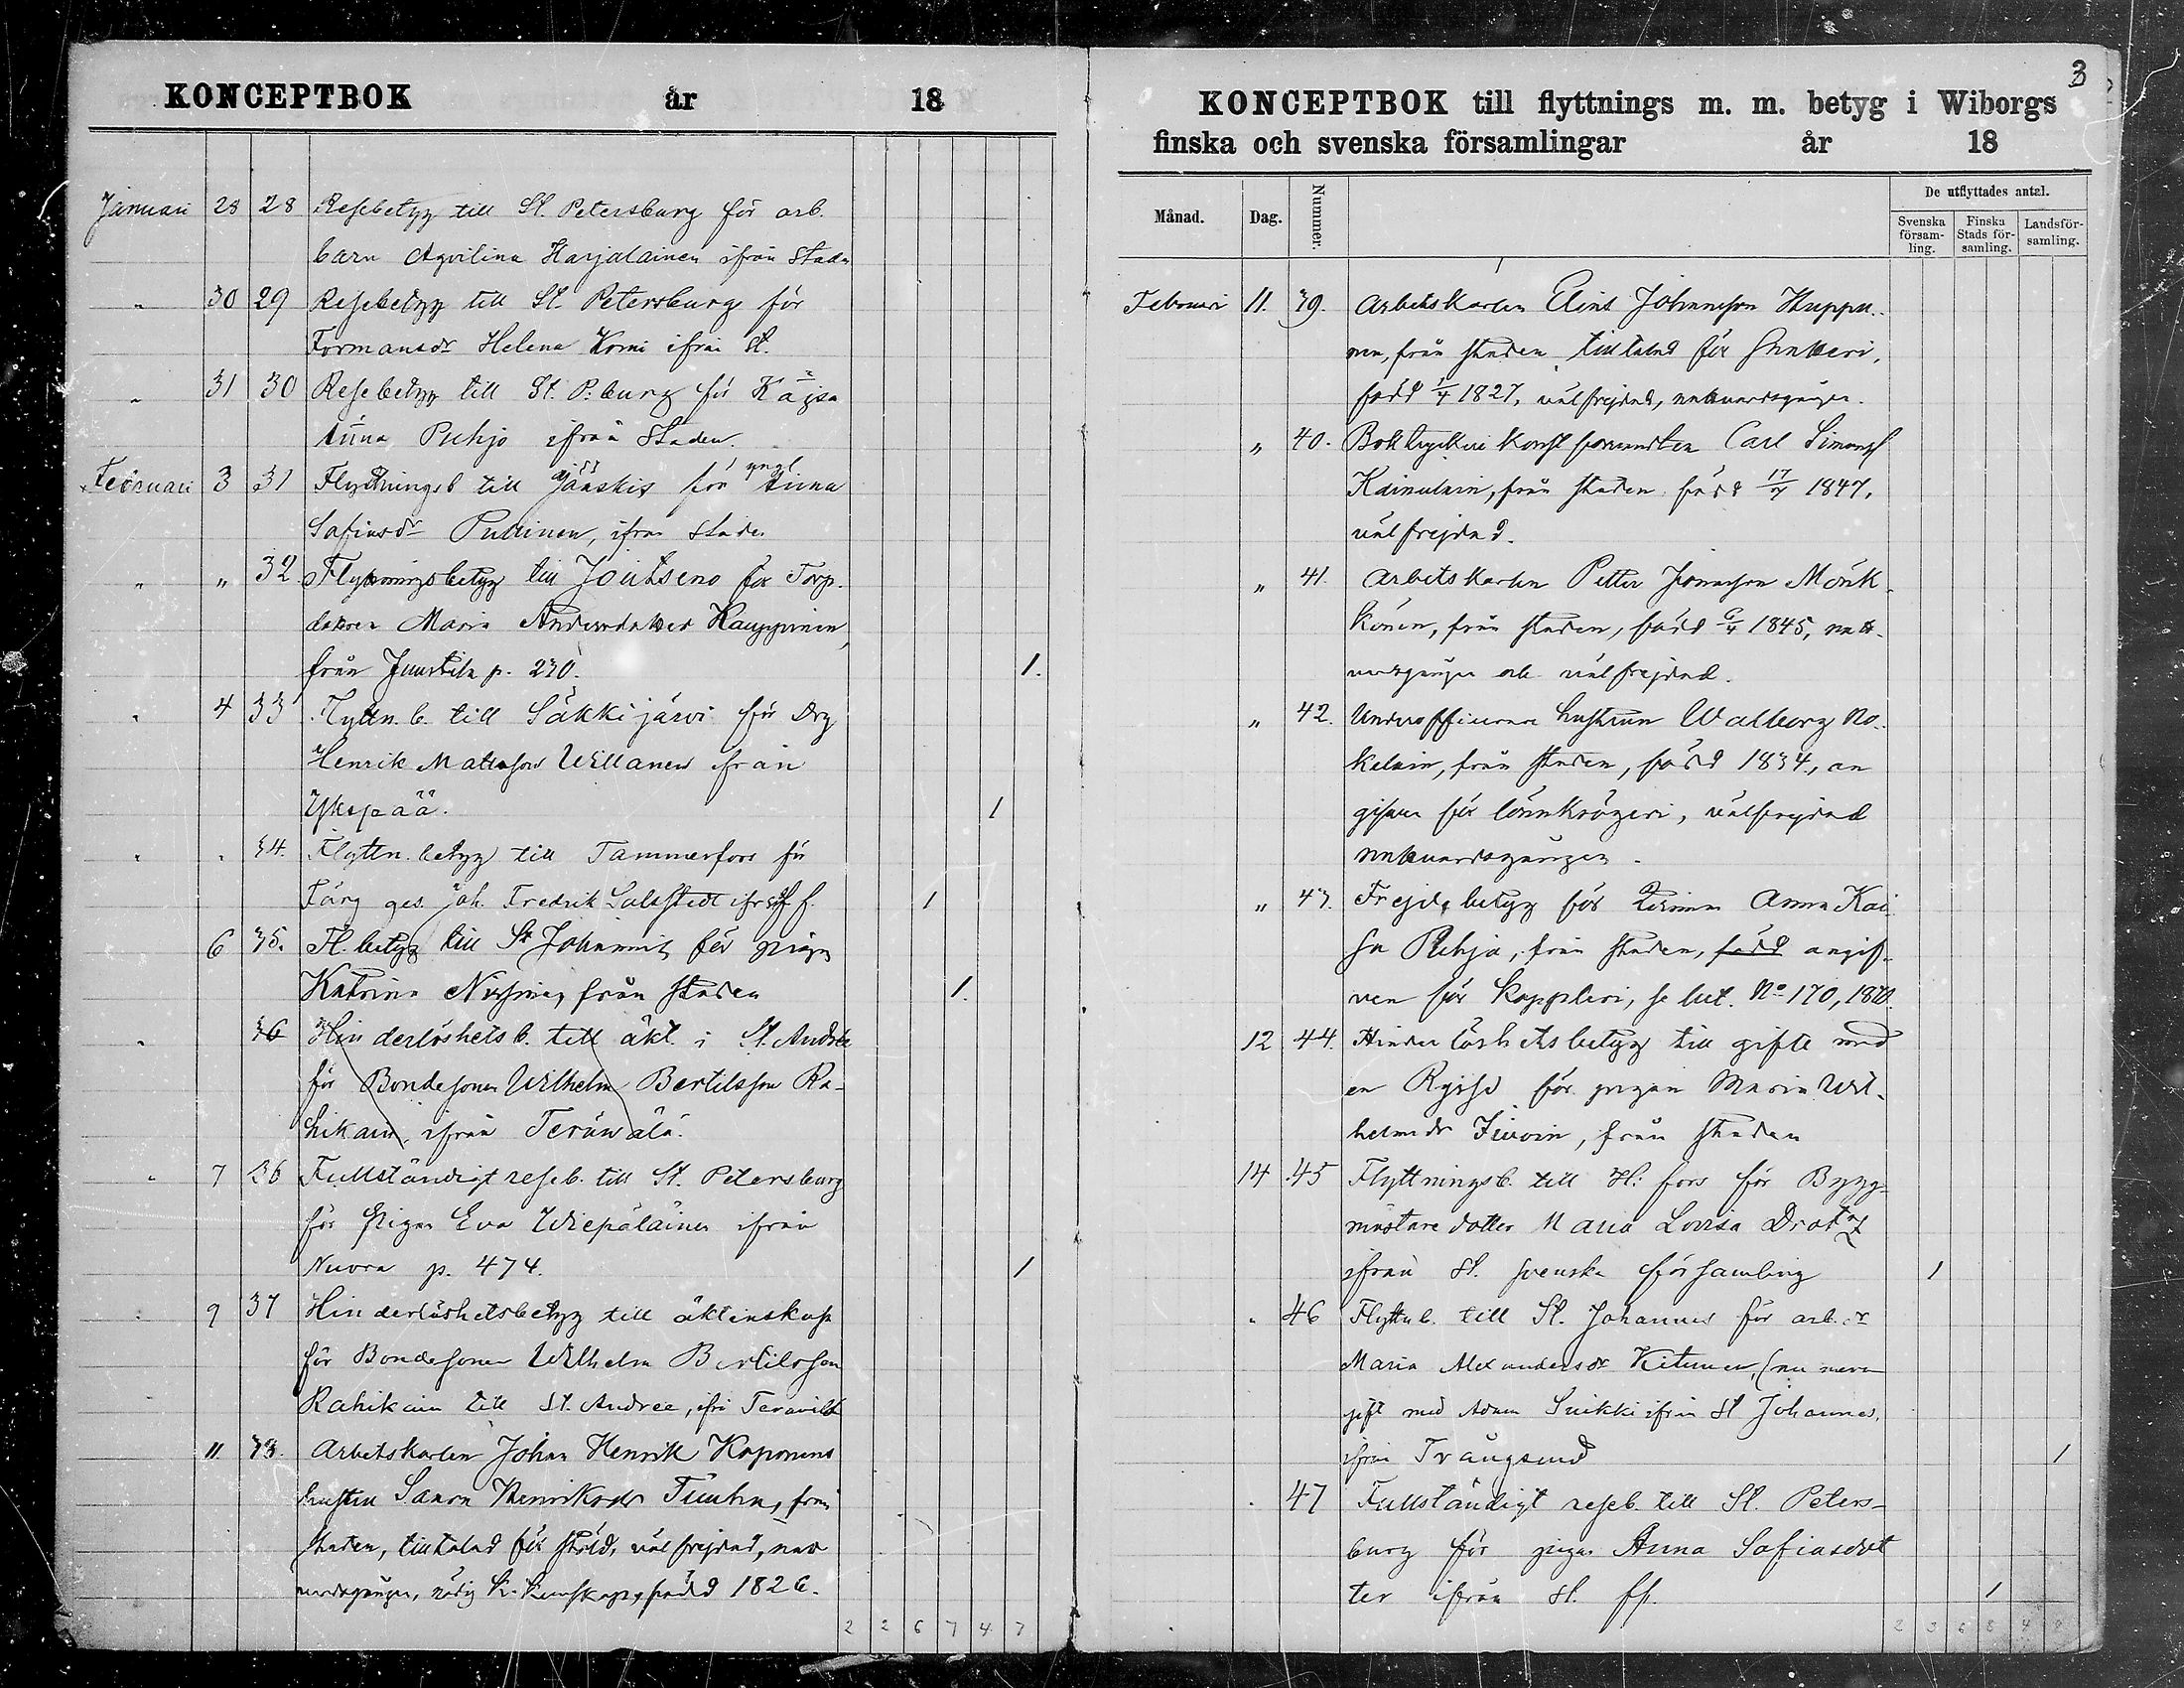 KONCEPTBOK år 18
Januari 28 28 Resebetyg till St. Petersburg för arb.
barn Aqvilina Harjalainen ifrån Staden
" 30 29 Resebetyg till St. Petersburg för
Formansdr Helena Komi ifrån St.
" 31 30 Resebetyg till St. P:burg för Kajsa
Anna Puhjo ifrån Staden.
Februari 3 31 Flyttningsb till Jääskis för yngl Anna
Safiasdr Putinen, ifrån Staden
" " 32. Flyttningsbetyg till Joutseno för Torp.
dottren Maria Andersdotter Kauppinen,
från Juustila p. 230. 1.
" 4 33 Flyttn. b. till Säkkijärvi för Drg
Henrik Mattsson Willanen ifrån
Ykspää. 1
" " 34. Flyttn. betyg till Tammerfors för
Färg ges. Joh. Fredrik Salstedt ifr st f. 1
6 35. Fl. betyg till St Johannis för pigan
Katrina från staden 1.
" 36 Hinderlöshets b. till äkt. i St. Andreæ
för Bondesonen Wilhelm Bertilsson Ra-
hikain, ifrån Terävälä.
" 7 36 Fullständigt reseb. till St. Petersburg
för Pigan Eva Wiepäläinen ifrån
Nuora p. 474. 1
" 9 37 Hinderlöshetsbetyg till äktenskap
för Bondesonen Wilhelm Bertilsson
Rahikain till St. Andree, ifrå Terävälä
11. 38. Arbetskarlen Johan Henrik Koponens
hustru Sanna Henriksdr från
staden, tilltalad för stöld, välfrejdad, natt
vardsgången, nödig k. kunskap, född 1826.
2 2 6 7 4 7
3
KONCEPTBOK till flyttnings m. m. betyg i Wiborgs
finska och svenska församlingar år 18
Månad. Dag. Nummer. De utflyttades antal.
Svenska församling. Finska Stads församling. Landsförsamling.
Februari 11. 39. Arbetskarlen Elias Johansson Huppu..
nen, från staden, tilltalad för snatteri,
född 1/4 1827, välfrejdad, nattvardsgången.
" 40. Boktryckeri konst förvandten Carl Simonss
Kainulain, från staden född 17/7 1847,
välfrejdad.
" 41. Arbetskarlen Petter Mönk-
könen, från staden, född 6/4 1845, natt-
vardsgången och välfrejdad.
" 42. Underofficerare hustrun Walborg No-
kelain, från staden, född 1834, an
gifven för lönnkrögeri, välfrejdad
nattvardsgången.
" 43. Frejdebetyg för Anna Kai
sa Puhjo, från staden, född angif-
ven för koppleri, se bet. No 170, 1870.
12 44. Hinderlöshetsbetyg till gifte med
en Ryss för pigan Maria Wil-
helmsdr från staden
14 45 Flyttningsb. till H:fors för Bygg-
mästare dotter Maria Lovisa
ifrån St. svenska församling 1
" 46 Flyttn b. till St. Johannes för arb. dr
Maria Alexandersdr Kitunen, (nu mera
gift med Adam Suikki ifrån St Johannes,
ifrån Trångsund 1
" 47 Fullständigt reseb. till St. Peters-
burg för pigan Anna Safiasdot
ter ifrån St. ff. 1
2 3 6 8 4 8